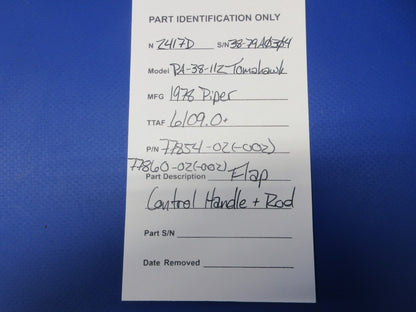 PART IDENTIFICATION ONLY
N 2417D S/N 38-79A0304
Model PA-38-112 Tomahawk
MFG 1978 Piper
TTAF 6109.0
P/N 77854-02(-002)
77860-02(-002)
Part Description Flap
Control Handle + Rod
Part S/N
Date Removed